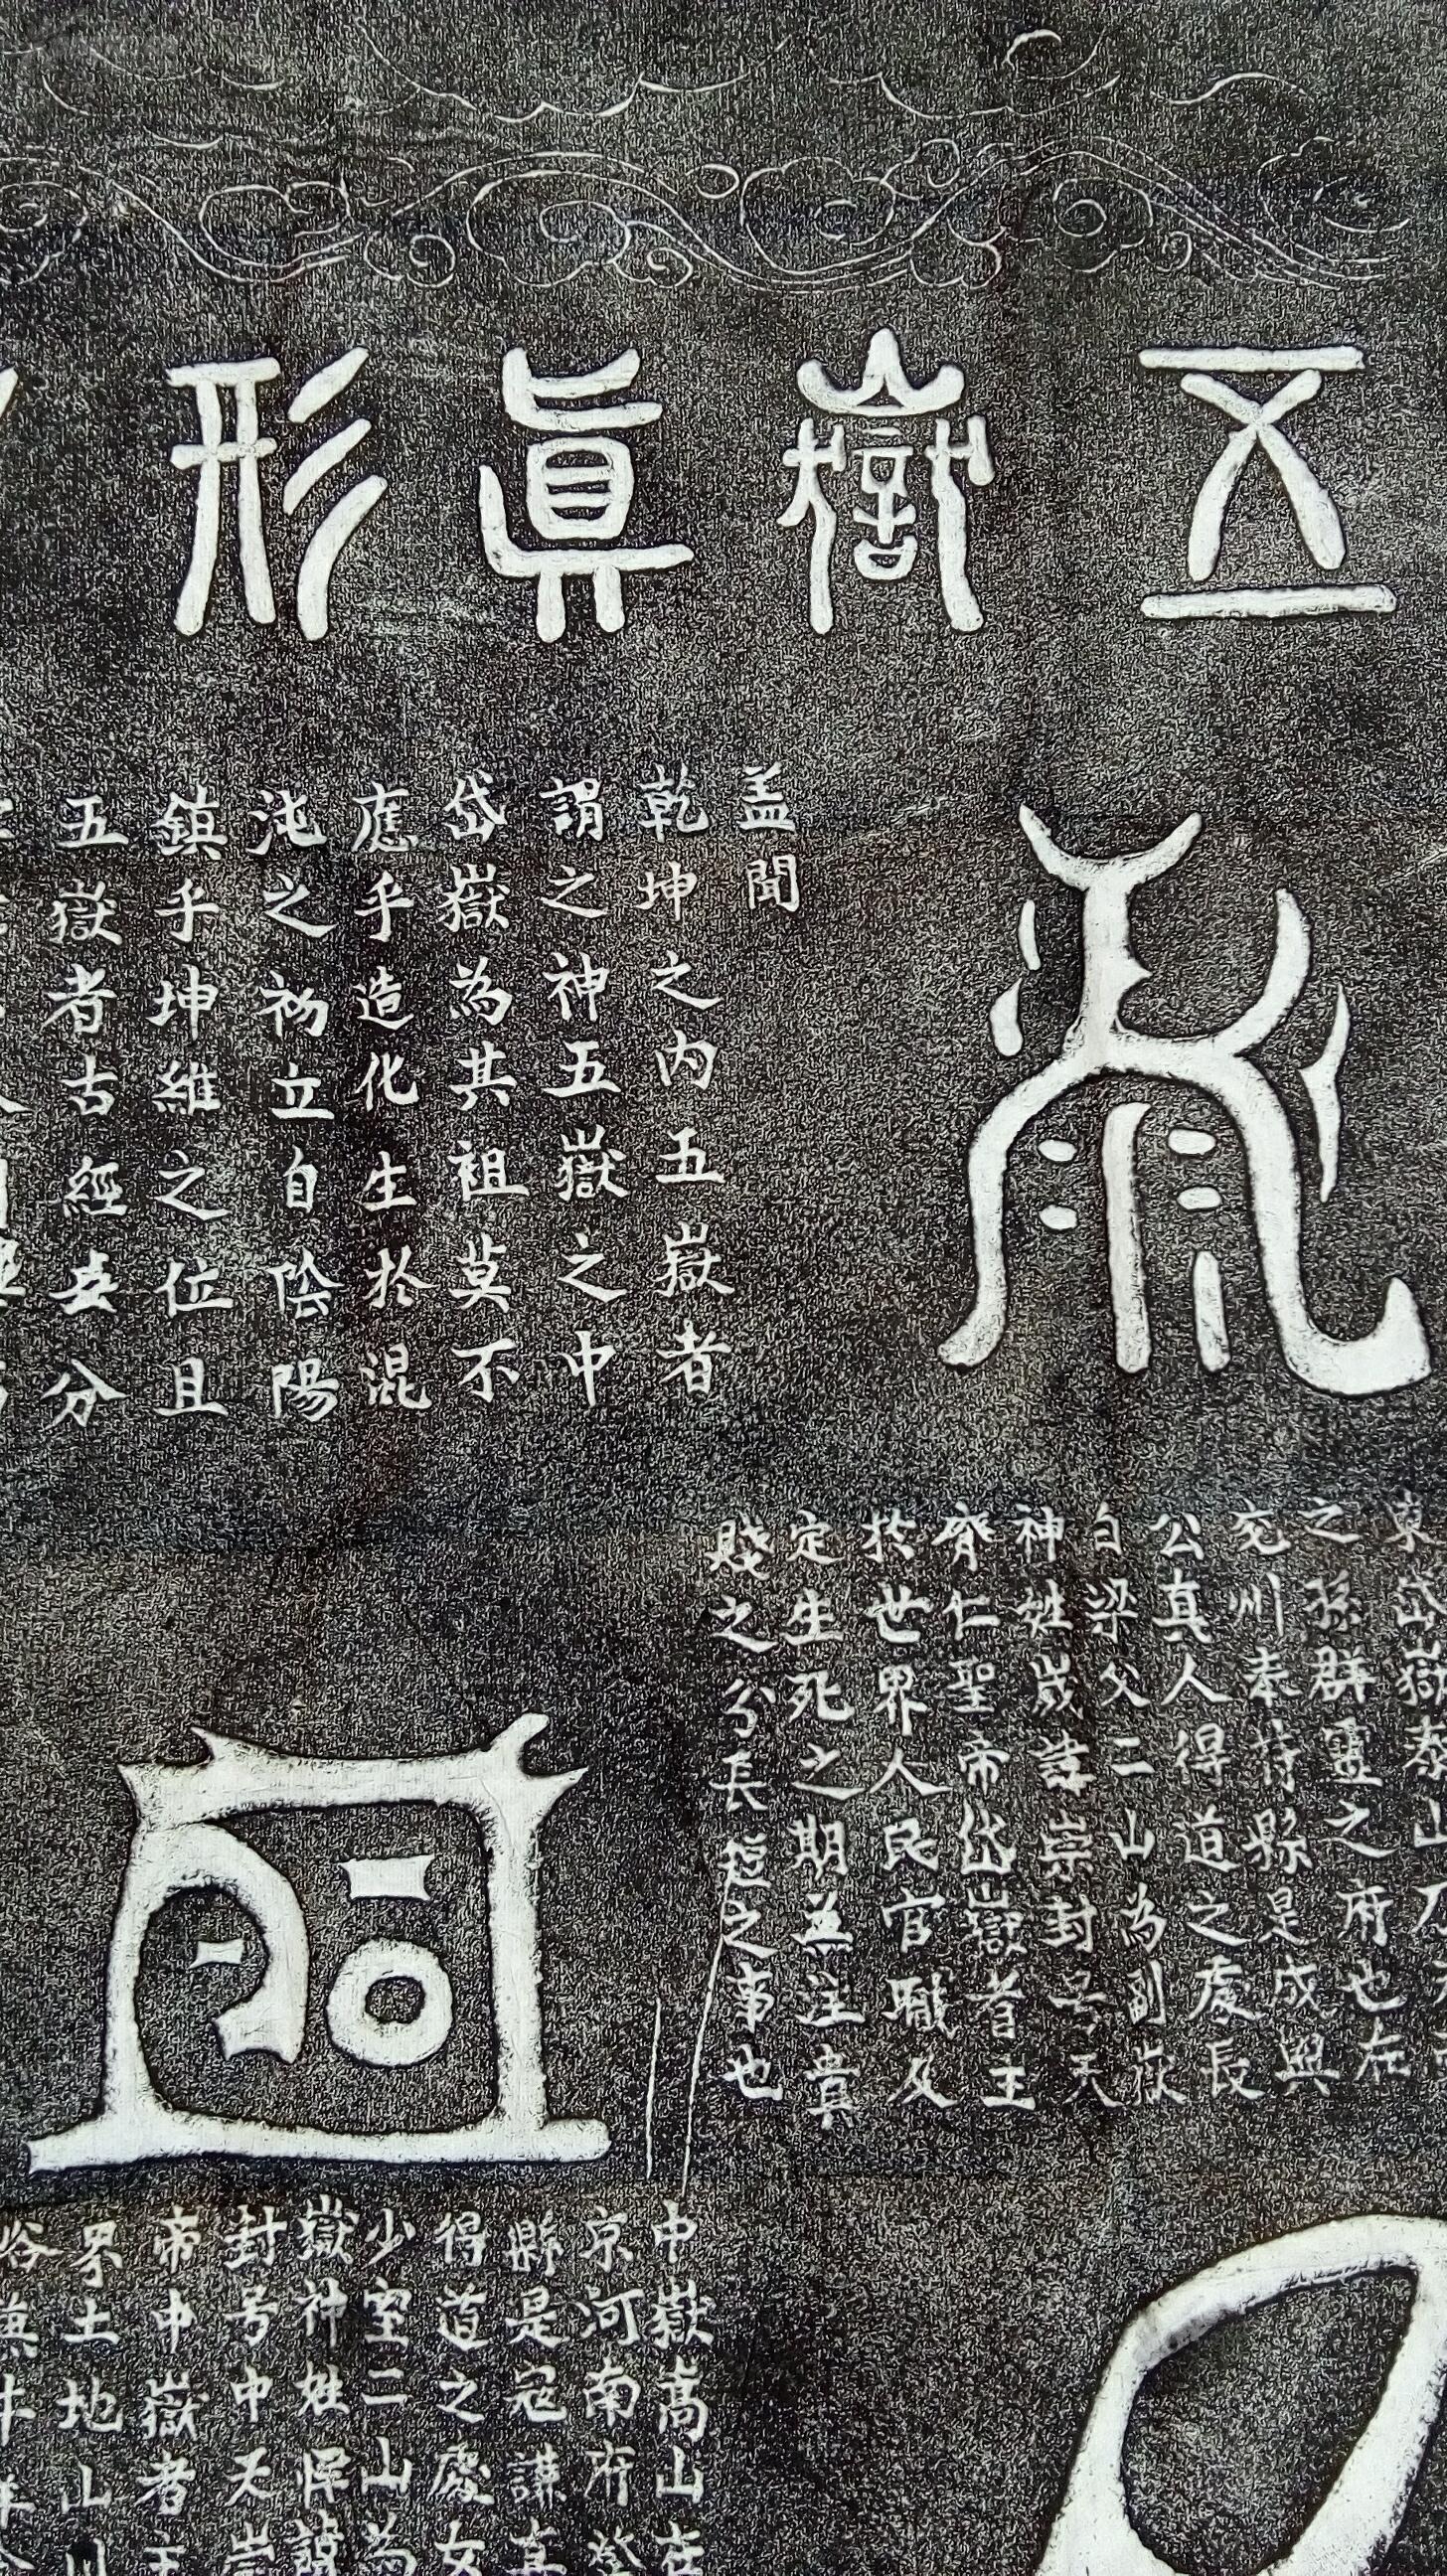 五嶽眞形
盖聞
乾坤之内五嶽者
謂之神五嶽之中
岱嶽為其祖莫不
應乎造化生扵混
沌之初立自陰陽
鎮乎坤維之位且
五嶽者古經云分
東岱嶽泰山乃天
之孫群靈之府也在
兖州奉苻縣是成興
公真人得道之處長
白梁父二山為副嶽
神姓嵗諱崇封号天
齊仁聖帝岱嶽者主
扵世界人民官職及
定生死之期並注貴
賤之分長短之事也
中嶽嵩山在
京河南府登
縣是宼謙真
得道之處女
少室二山為
嶽神姓惲諱
封号中天崇
帝中嶽者主
界土地山川
谷